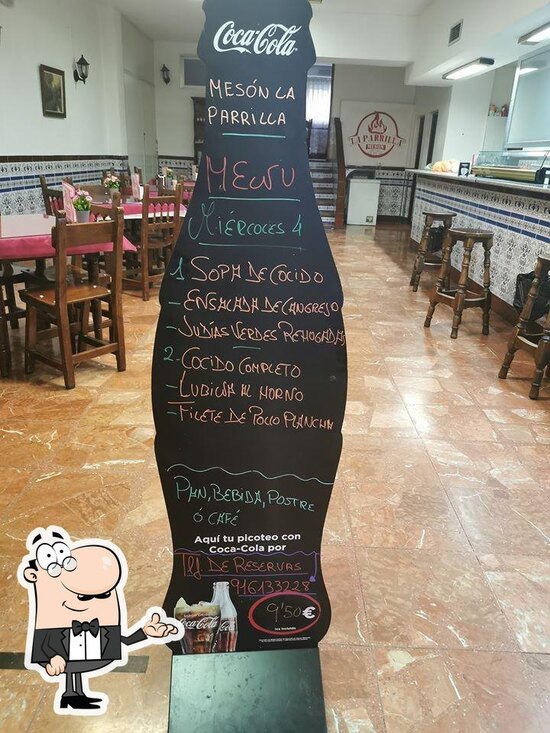 Coca-Cola
MESÓN LA
PARRILLA
LA PARRILLA
MESÓN
MENU
MIÉRCOLES 4
1 SOPA DE COCIDO
- ENSALADA DE CANGREJO
- JUDÍAS VERDES REHOGADAS
2- COCIDO COMPLETO
- LUBINA AL HORNO
- FILETE DE POLLO PLANCHA
PAN, BEBIDA, POSTRE
Ó CAFÉ
Aquí tu picoteo con
Coca-Cola por
TLF DE RESERVAS
916133228
9'50€
Coca-Cola